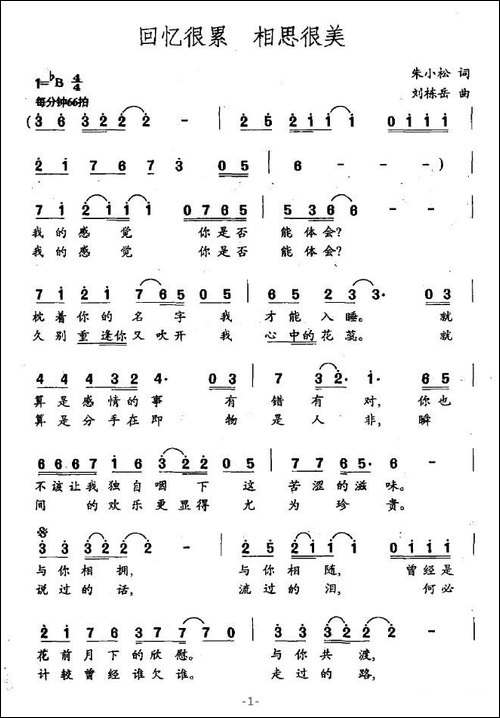 回忆很累 相思很美
1=♭B 4/4
朱小松 词
每分钟66拍
刘栋岳 曲
(3 6 3 2 2 2 - | 2 5 2 1 1 1 0 1 1 1 |
2 1 7 6 7 3 0 5 | 6 - - - ) |
7 1 2 1 1 1 0 7 6 5 | 5 3 6 6 - - |
我的感觉 你是否 能体会?
我的感觉 你是否 能体会?
7 1 2 1 7 6 5 0 5 | 6 5 2 3 3 · 0 3 |
枕着你的名字 我 才能入睡。 就
久别重逢你又吹开 我 心中的花蕊。 就
4 4 4 4 3 2 4 · 0 3 | 7 3 2 · 1 · 6 5 |
算是感情的事 有 错有对, 你也
算是分手在即 物 是人非, 瞬
6 6 6 7 1 6 3 2 2 0 5 | 7 7 6 5 6 5 · - |
不该让我独自咽下 这 苦涩的滋味。
间的欢乐更显得 尤 为珍贵。
3 3 3 2 2 - | 2 5 2 1 1 1 0 1 1 1 |
与你相拥, 与你相随, 曾经是
说过的话, 流过的泪, 何必
2 1 7 6 7 3 7 7 0 | 3 3 3 2 2 2 - |
花前月下的欣慰。 与你共渡,
计较曾经谁欠谁。 走过的路,
-1-